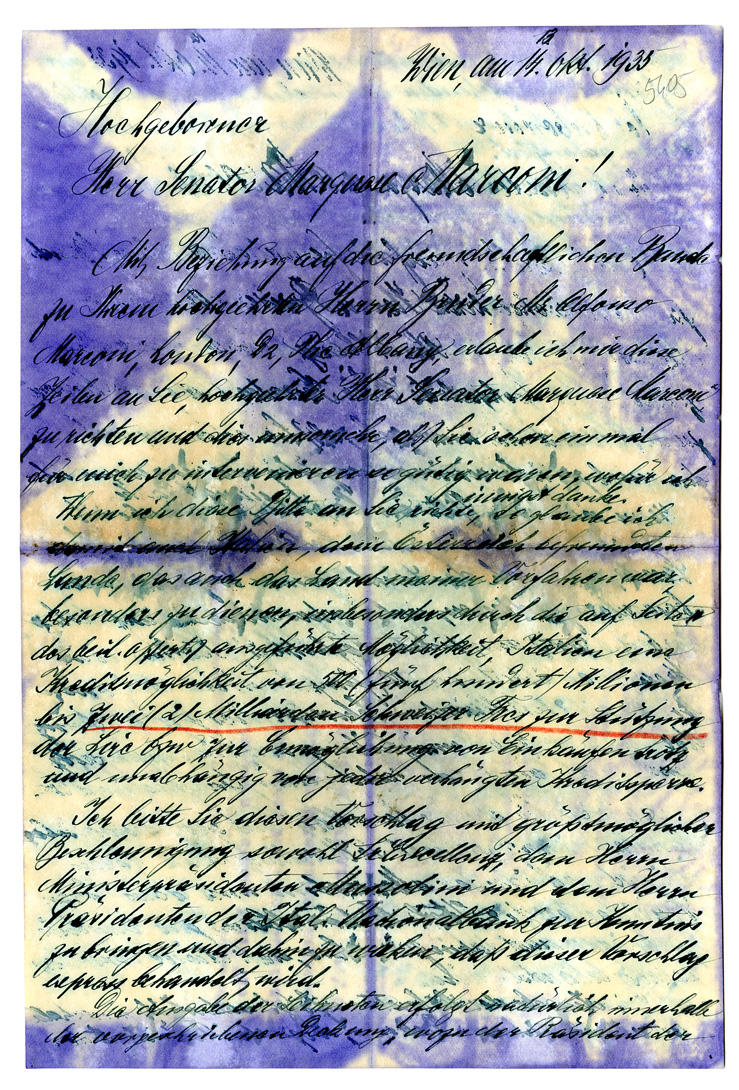 Wien, am 14. Okt. 1935
5405
Hochgeborener
Herr Senator Marquese Marconi!
Mit Beziehung auf die freundschaftlichen Bande
zu Ihrem hochgeehrten Herrn Bruder Mr. Alfonso
Marconi, London, The Albany, erlaube ich mir diese
Zeilen an Sie, Herr Senator Marquese Marconi
zu richten und dies umsomehr, als Sie schon einmal
für mich zu intervenieren so gütig waren, wofür ich
innigst danke.
Wenn ich diese Bitte an Sie richte, so glaube ich
damit auch Italien, dem Österreich befreundeten
Lande, das auch das Land meiner Vorfahren war
besonders zu dienen, insbesonders durch die auf Seite
des beil. Offerts ausgeführte Möglichkeit, Italien eine
Kreditmöglichkeit von 500 (fünf hundert) Millionen
bis Zwei (2) Milliarden Schweizer Frcs zur Stützung
der Lire bzw zur Ermöglichung von Einkäufen trotz
und unabhängig von jeder verhängten Kreditsperre.
Ich bitte Sie diesen Vorschlag mit größtmöglicher
Beschleunigung sowohl Sr. Excellenz, dem Herrn
Ministerpräsidenten Mussolini und dem Herrn
Präsidenten der Ital. Nationalbank zur Kenntnis
zu bringen und dahin zu wirken, daß dieser Vorschlag
express behandelt wird.
Die Ausgabe der erfolgt natürlich innerhalb
der vorgeschriebenen Deckung, wozu der Präsident der